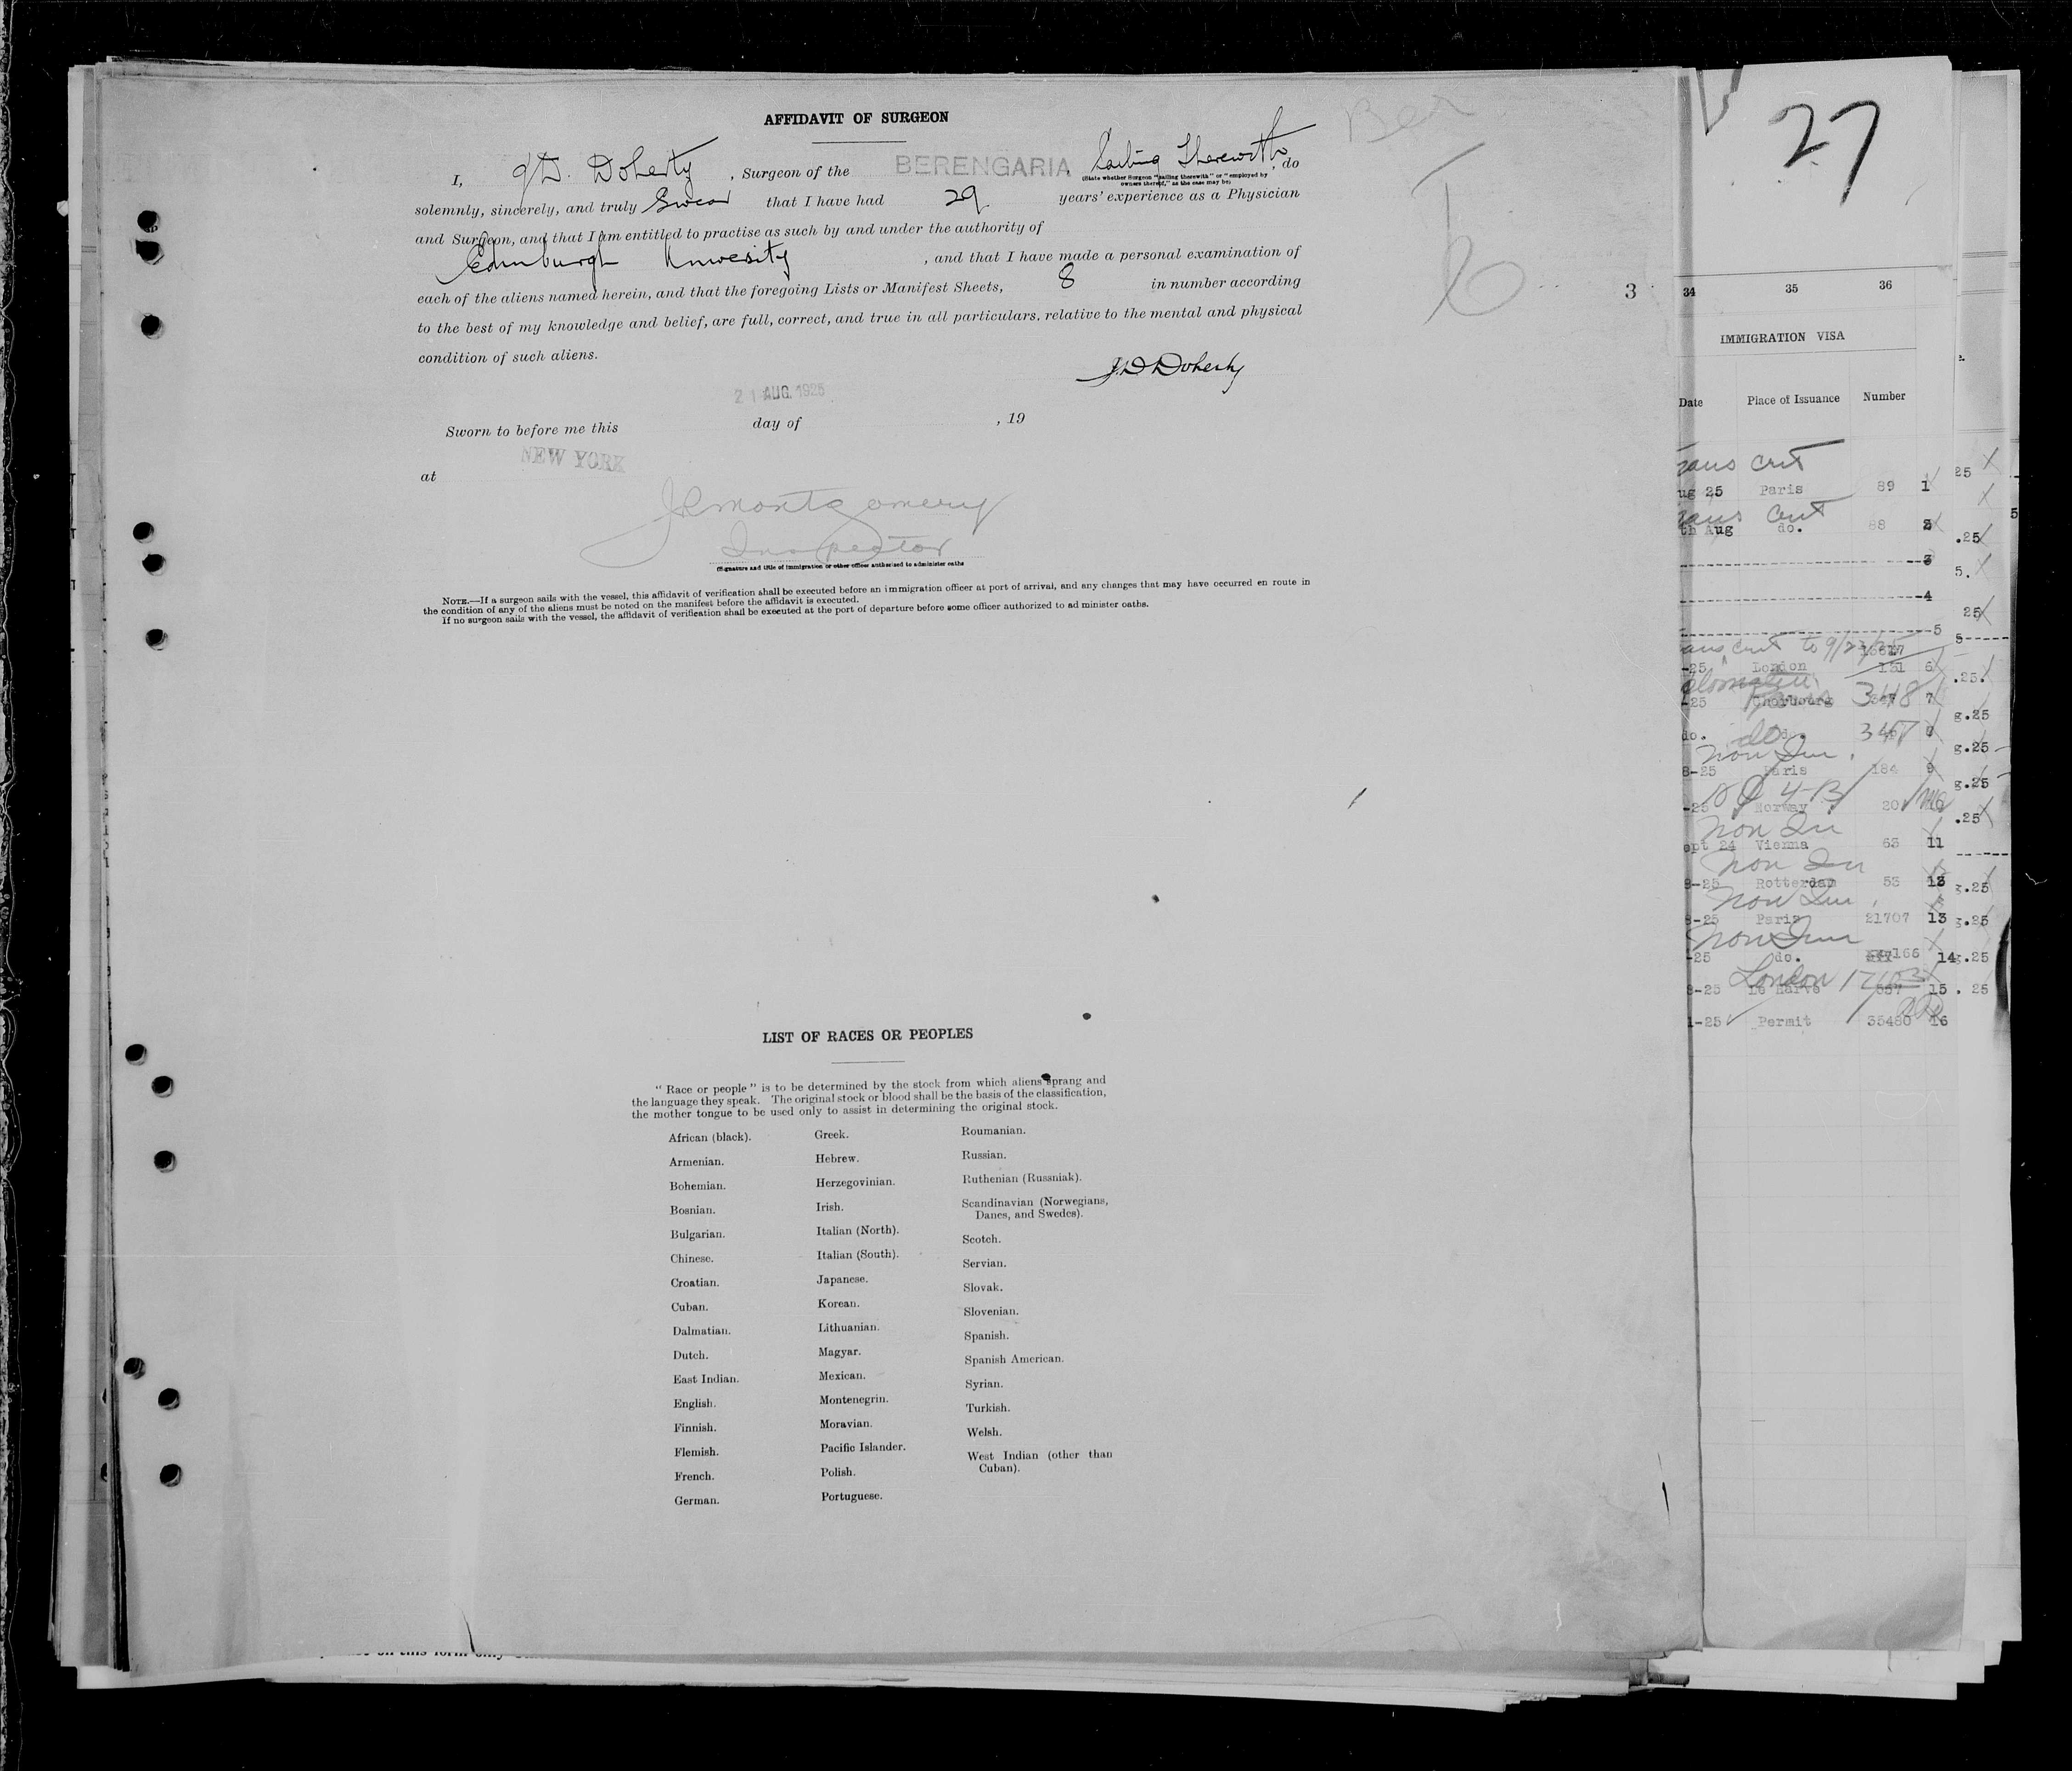 AFFIDAVIT OF SURGEON
I, J.D. Doherty, Surgeon of the BERENGARIA, Sailing Therewith, do
(State whether Surgeon "sailing therewith" or "employed by
owners thereof," as the case may be)
solemnly, sincerely, and truly Swear that I have had 29 years' experience as a Physician
and Surgeon, and that I am entitled to practise as such by and under the authority of
Edinburgh University, and that I have made a personal examination of
each of the aliens named herein, and that the foregoing Lists or Manifest Sheets, 8 in number according
to the best of my knowledge and belief, are full, correct, and true in all particulars, relative to the mental and physical
condition of such aliens.
J.D Doherty
21 AUG. 1925
Sworn to before me this day of , 19
at NEW YORK
J R Montgomery
Inspector
(Signature and title of immigration or other officer authorised to administer oaths
NOTE.—If a surgeon sails with the vessel, this affidavit of verification shall be executed before an immigration officer at port of arrival, and any changes that may have occurred en route in
the condition of any of the aliens must be noted on the manifest before the affidavit is executed.
If no surgeon sails with the vessel, the affidavit of verification shall be executed at the port of departure before some officer authorized to ad minister oaths.
LIST OF RACES OR PEOPLES
"Race or people" is to be determined by the stock from which aliens sprang and
the language they speak. The original stock or blood shall be the basis of the classification,
the mother tongue to be used only to assist in determining the original stock.
African (black).
Armenian.
Bohemian.
Bosnian.
Bulgarian.
Chinese.
Croatian.
Cuban.
Dalmatian.
Dutch.
East Indian.
English.
Finnish.
Flemish.
French.
German.
Greek.
Hebrew.
Herzegovinian.
Irish.
Italian (North).
Italian (South).
Japanese.
Korean.
Lithuanian.
Magyar.
Mexican.
Montenegrin.
Moravian.
Pacific Islander.
Polish.
Portuguese.
Roumanian.
Russian.
Ruthenian (Russniak).
Scandinavian (Norwegians,
Danes, and Swedes).
Scotch.
Servian.
Slovak.
Slovenian.
Spanish.
Spanish American.
Syrian.
Turkish.
Welsh.
West Indian (other than
Cuban).
Ber
3
27
34 35 36
IMMIGRATION VISA
Date Place of Issuance Number
ug 25 Paris 89 1
th Aug do. 88 2
3
4
5
-25 London 131 6
-25 Cherbourg 348 7
do. do. 347
Non Im
8-25 Paris 184 9
-25 Norway 20
Non Im
ept 24 Vienna 63 11
Non Im
8-25 Rotterdam 53
Non Im
8-25 Paris 21707 13
Non Im
-25 do. 14
London
8-25 Le Harve 557 15
1-25 Permit 35480 16